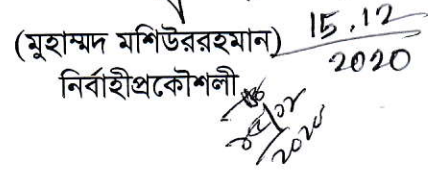 (মুহাম্মদ মশিউররহমান) 15.12
2020
নির্বাহীপ্রকৌশলী